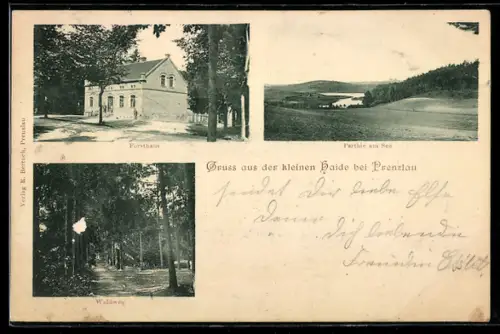 Verlag E. Bertsch, Prenzlau
Forsthaus
Parthie am See
Gruss aus der kleinen Haide bei Prenzlau
sendet Dir liebe Else
Deine
Dich liebende
Freundin
Waldweg